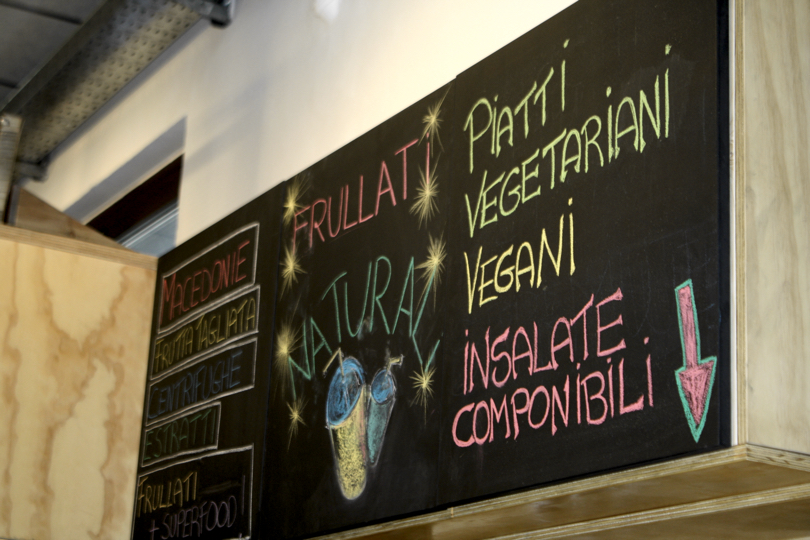 MACEDONIE
FRUTTA TAGLIATA
CENTRIFUGHE
ESTRATTI
FRULLATI
+ SUPERFOOD!
FRULLATI
NATURALI
PIATTI
VEGETARIANI
VEGANI
INSALATE
COMPONIBILI